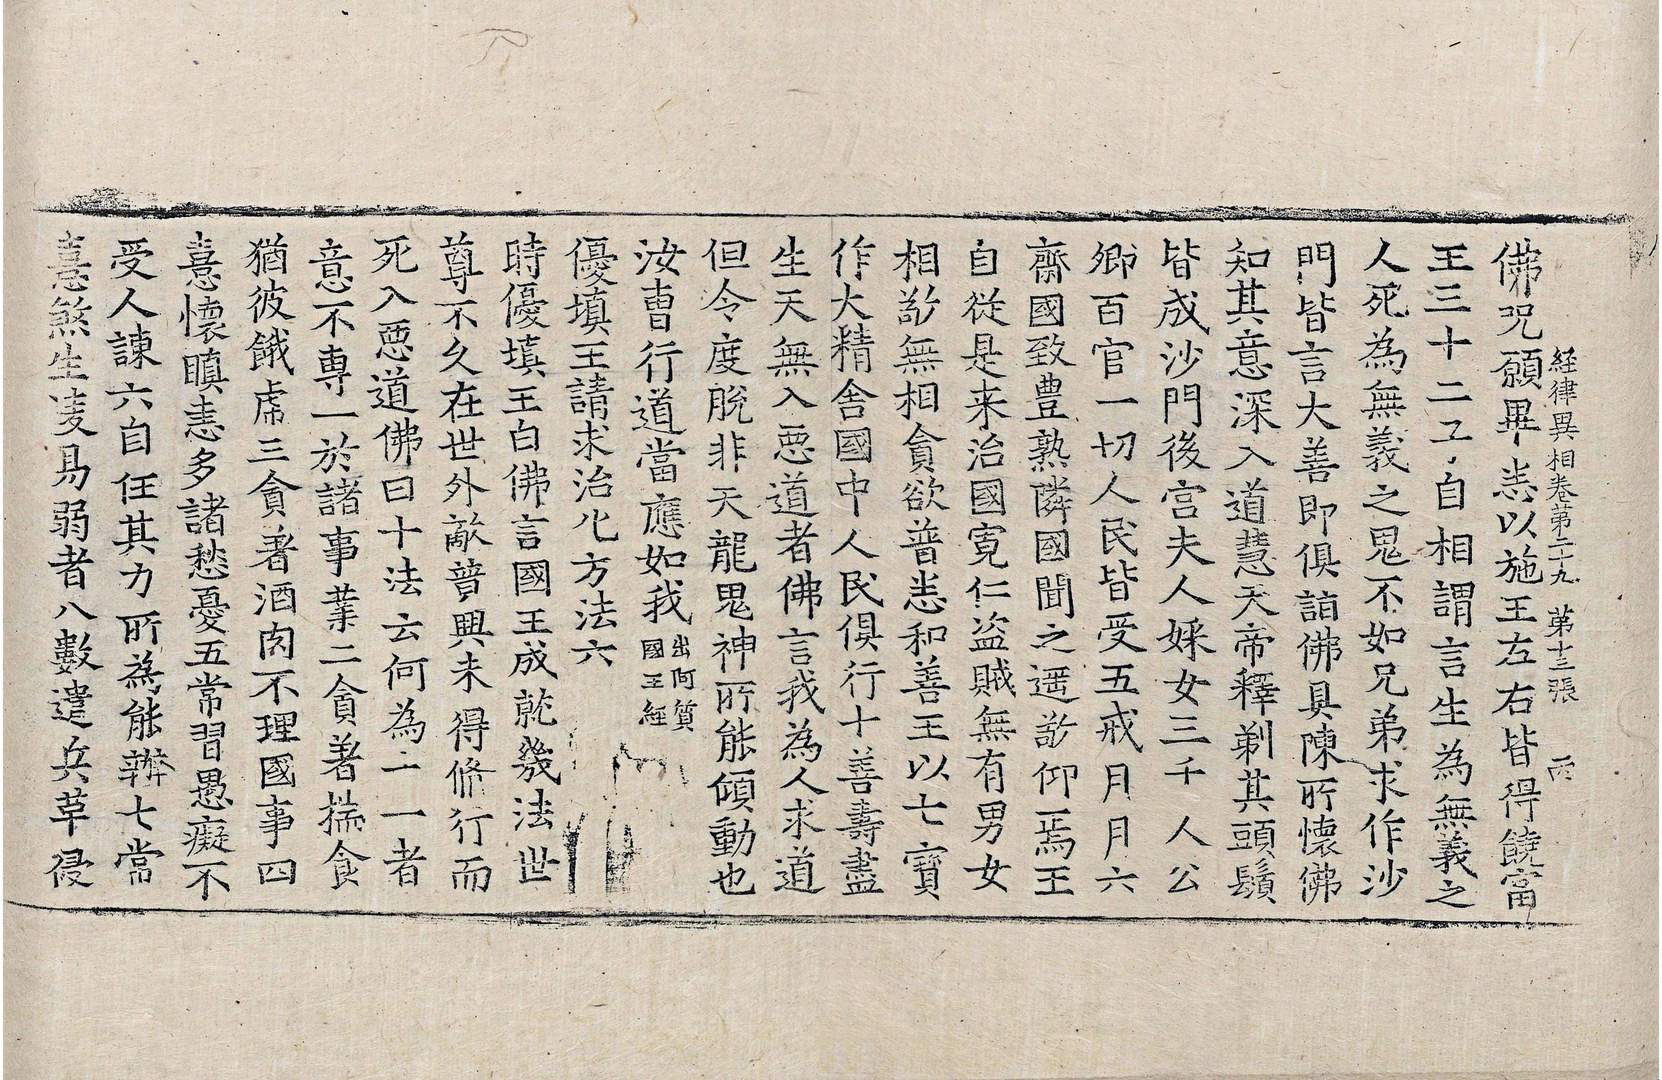 経律異相卷第二十九 第十三張 丙
佛呪願畢悉以施王左右皆得饒富
王三十二子自相謂言生為無義之
人死為無義之鬼不如兄弟求作沙
門皆言大善即俱詣佛具陳所懷佛
知其意深入道慧天帝釋剃其頭鬚
皆成沙門後宮夫人婇女三千人公
卿百官一切人民皆受五戒月月六
齋國致豊熟隣國聞之遥訟仰焉王
自從是来治國寛仁盗賊無有男女
相訟無相貪欲普恚和善王以七寶
作大精舍國中人民俱行十善壽盡
生天無入悪道者佛言我為人求道
但令度脫非天龍鬼神所能傾動也
汝曹行道當應如我 出阿質國王經
優填王請求治化方法六
時優填王白佛言國王成就幾法世
尊不久在世外敵競興未得脩行而
死入悪道佛曰十法云何為二一者
意不専一於諸事業二貪著揣食
猶彼餓虎三貪著酒肉不理國事四
憙懷瞋恚多諸愁憂五常習愚癡不
受人諫六自任其力所為能辦七常
憙煞生凌易弱者八數遣兵草侵